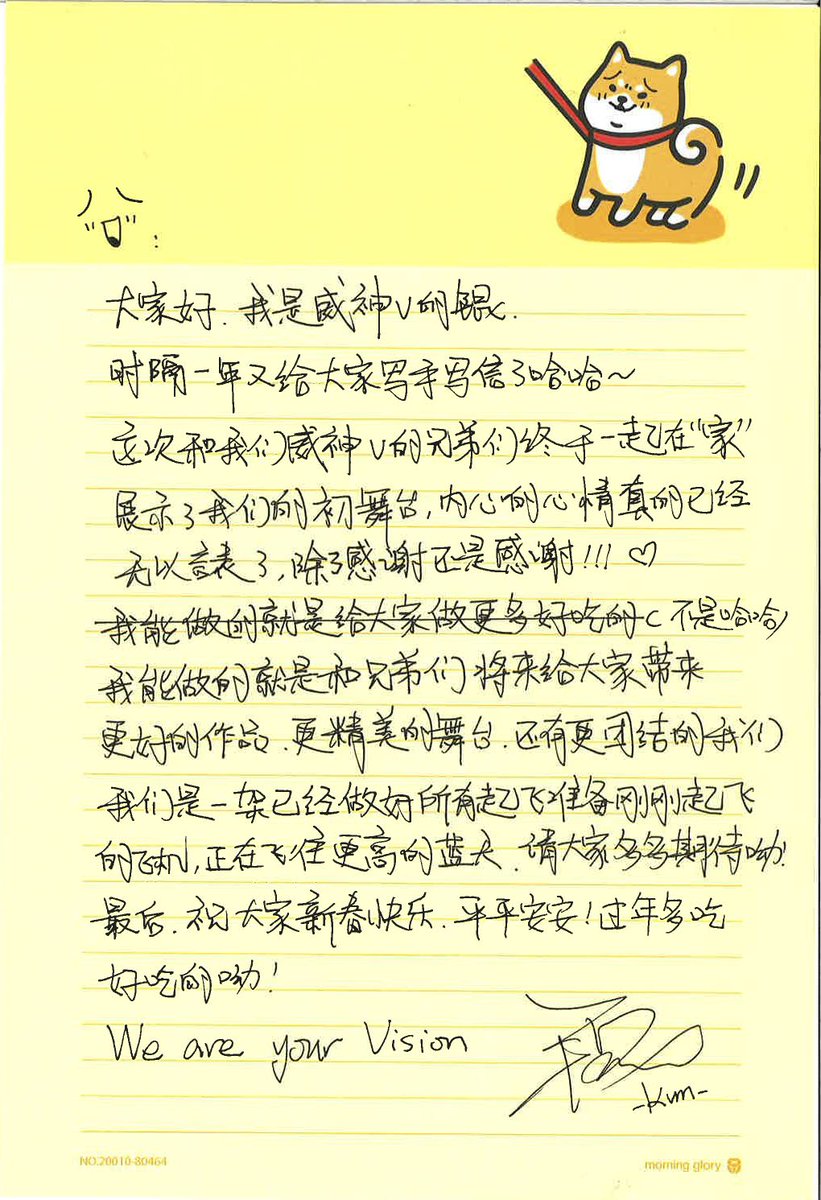 大家好.我是威神V的锟.
时隔一年又给大家写手写信了哈哈~
这次和我们威神V的兄弟们终于一起在"家"
展示了我们的初舞台,内心的心情真的已经
无以言表了,除了感谢还是感谢!!! ♡
我能做的就是给大家做更多好吃的(不是哈哈)
我能做的就是和兄弟们将来给大家带来
更好的作品.更精美的舞台.还有更团结的我们
我们是一架已经做好所有起飞准备刚刚起飞
的飞机,正在飞往更高的蓝天.请大家多多期待呦!
最后.祝大家新春快乐.平平安安!过年多吃
好吃的呦!
We are your Vision
-kun-
NO.20010-80464
morning glory